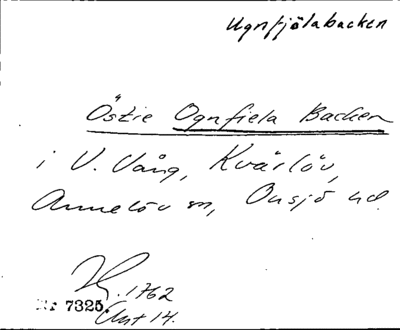 Ugnfjölabacken
Östre Ognfiela Backen
i V. Vång, Kvärlöv,
Annelöv sn, Onsjö hd.
1762
Nr 7325. Akt 14.